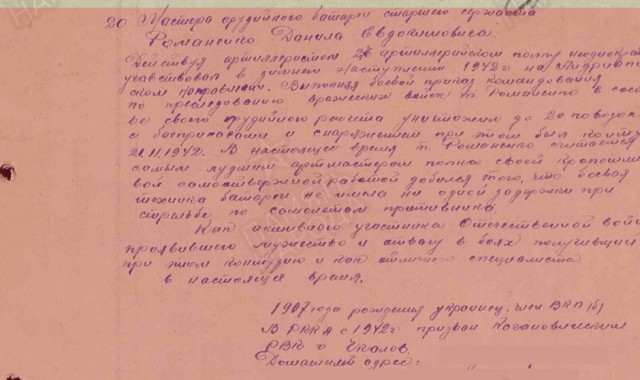 20 Мастера орудийного батареи старшего сержанта
Романенко Данила Евдокимовича.
Действуя артиллеристом 2 артиллерийском полку неоднократ
участвовал в зимнем наступлении 1942 г на
ском направлении. Выполняя боевой приказ командования
по преследованию вражеских войск т. Романенко в сос
ве своего орудийного расчета уничтожил до 20 повозок
с боеприпасами и снаряжением при этом был контуж
21.11.1942. В настоящее время т. Романенко считается
самым лучшим артмастером полка своей кропотли
вой самоотверженной работой добился того, что боевая
техника батареи не имела ни одной задержки при
стрельбе по самолетам противника.
Как активного участника Отечественной вой
проявившего мужество и отвагу в боях получивший
при этом контузию и как отличного специалиста
в настоящее время.
1907 года рождения украинец. член ВКП(б)
В РККА с 1942 г призван Кагановическим
РВК г Чкалов.
Домашний адрес: